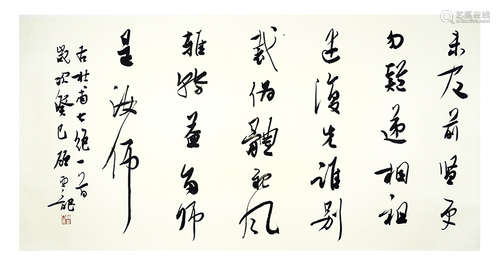 未及前賢更
勿疑遞相祖
述復先誰別
裁偽體親風
雅轉益多師
是汝師
杜甫七絕一首
歲次癸巳 記